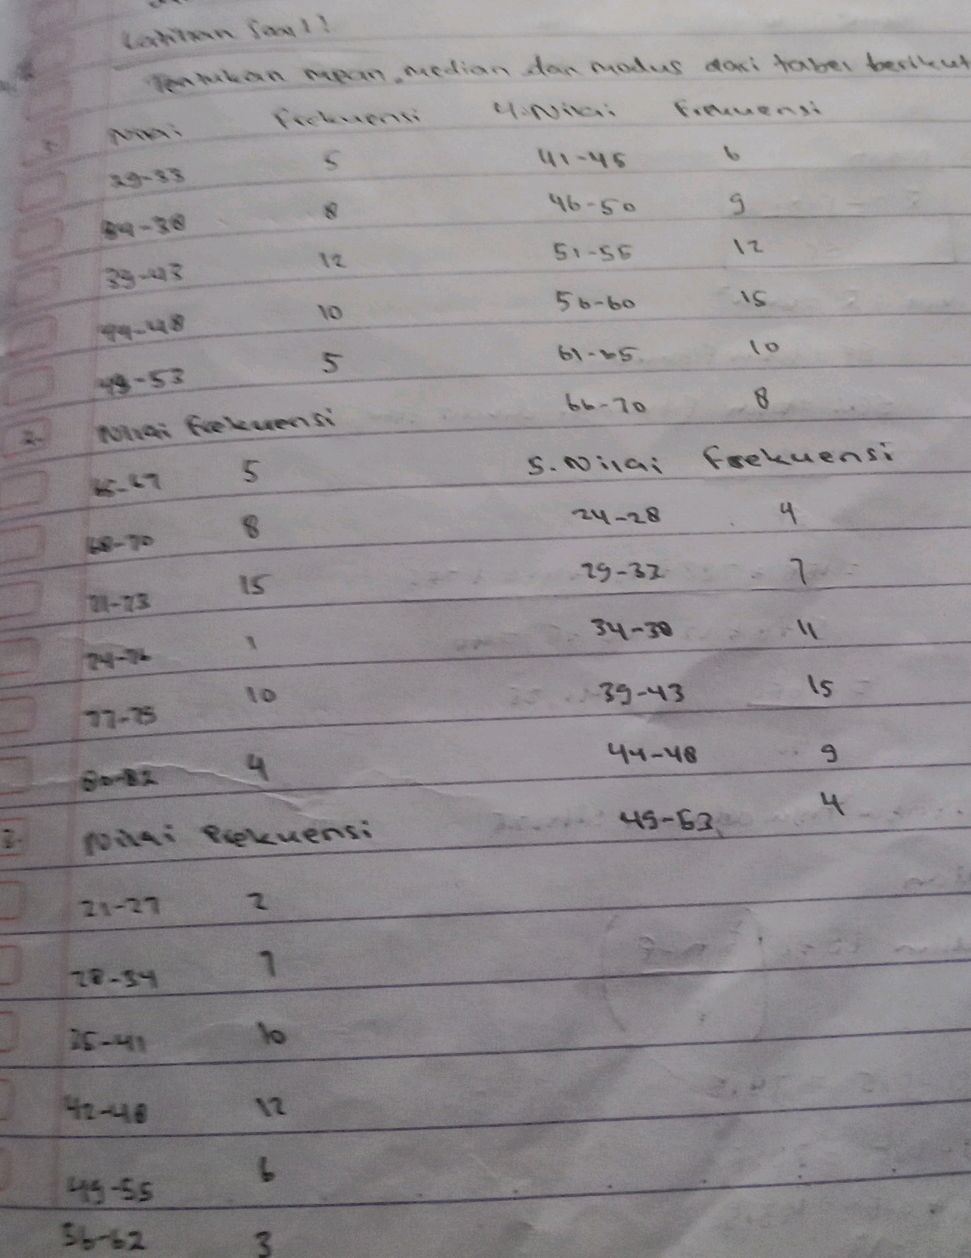 Latihan Soal!!
Tentukan mean, median dan modus dari tabel berikut
1. Nilai Frekuensi
29-33 5
34-38 8
39-43 12
44-48 10
49-53 5
2. Nilai Frekuensi
65-67 5
68-70 8
71-73 15
74-76 1
77-79 10
80-82 4
3. Nilai Frekuensi
21-27 2
28-34 7
35-41 10
42-48 12
49-55 6
56-62 3
4. Nilai Frekuensi
41-45 6
46-50 9
51-55 12
56-60 15
61-65 10
66-70 8
5. Nilai Frekuensi
24-28 4
29-33 7
34-38 11
39-43 15
44-48 9
49-53 4